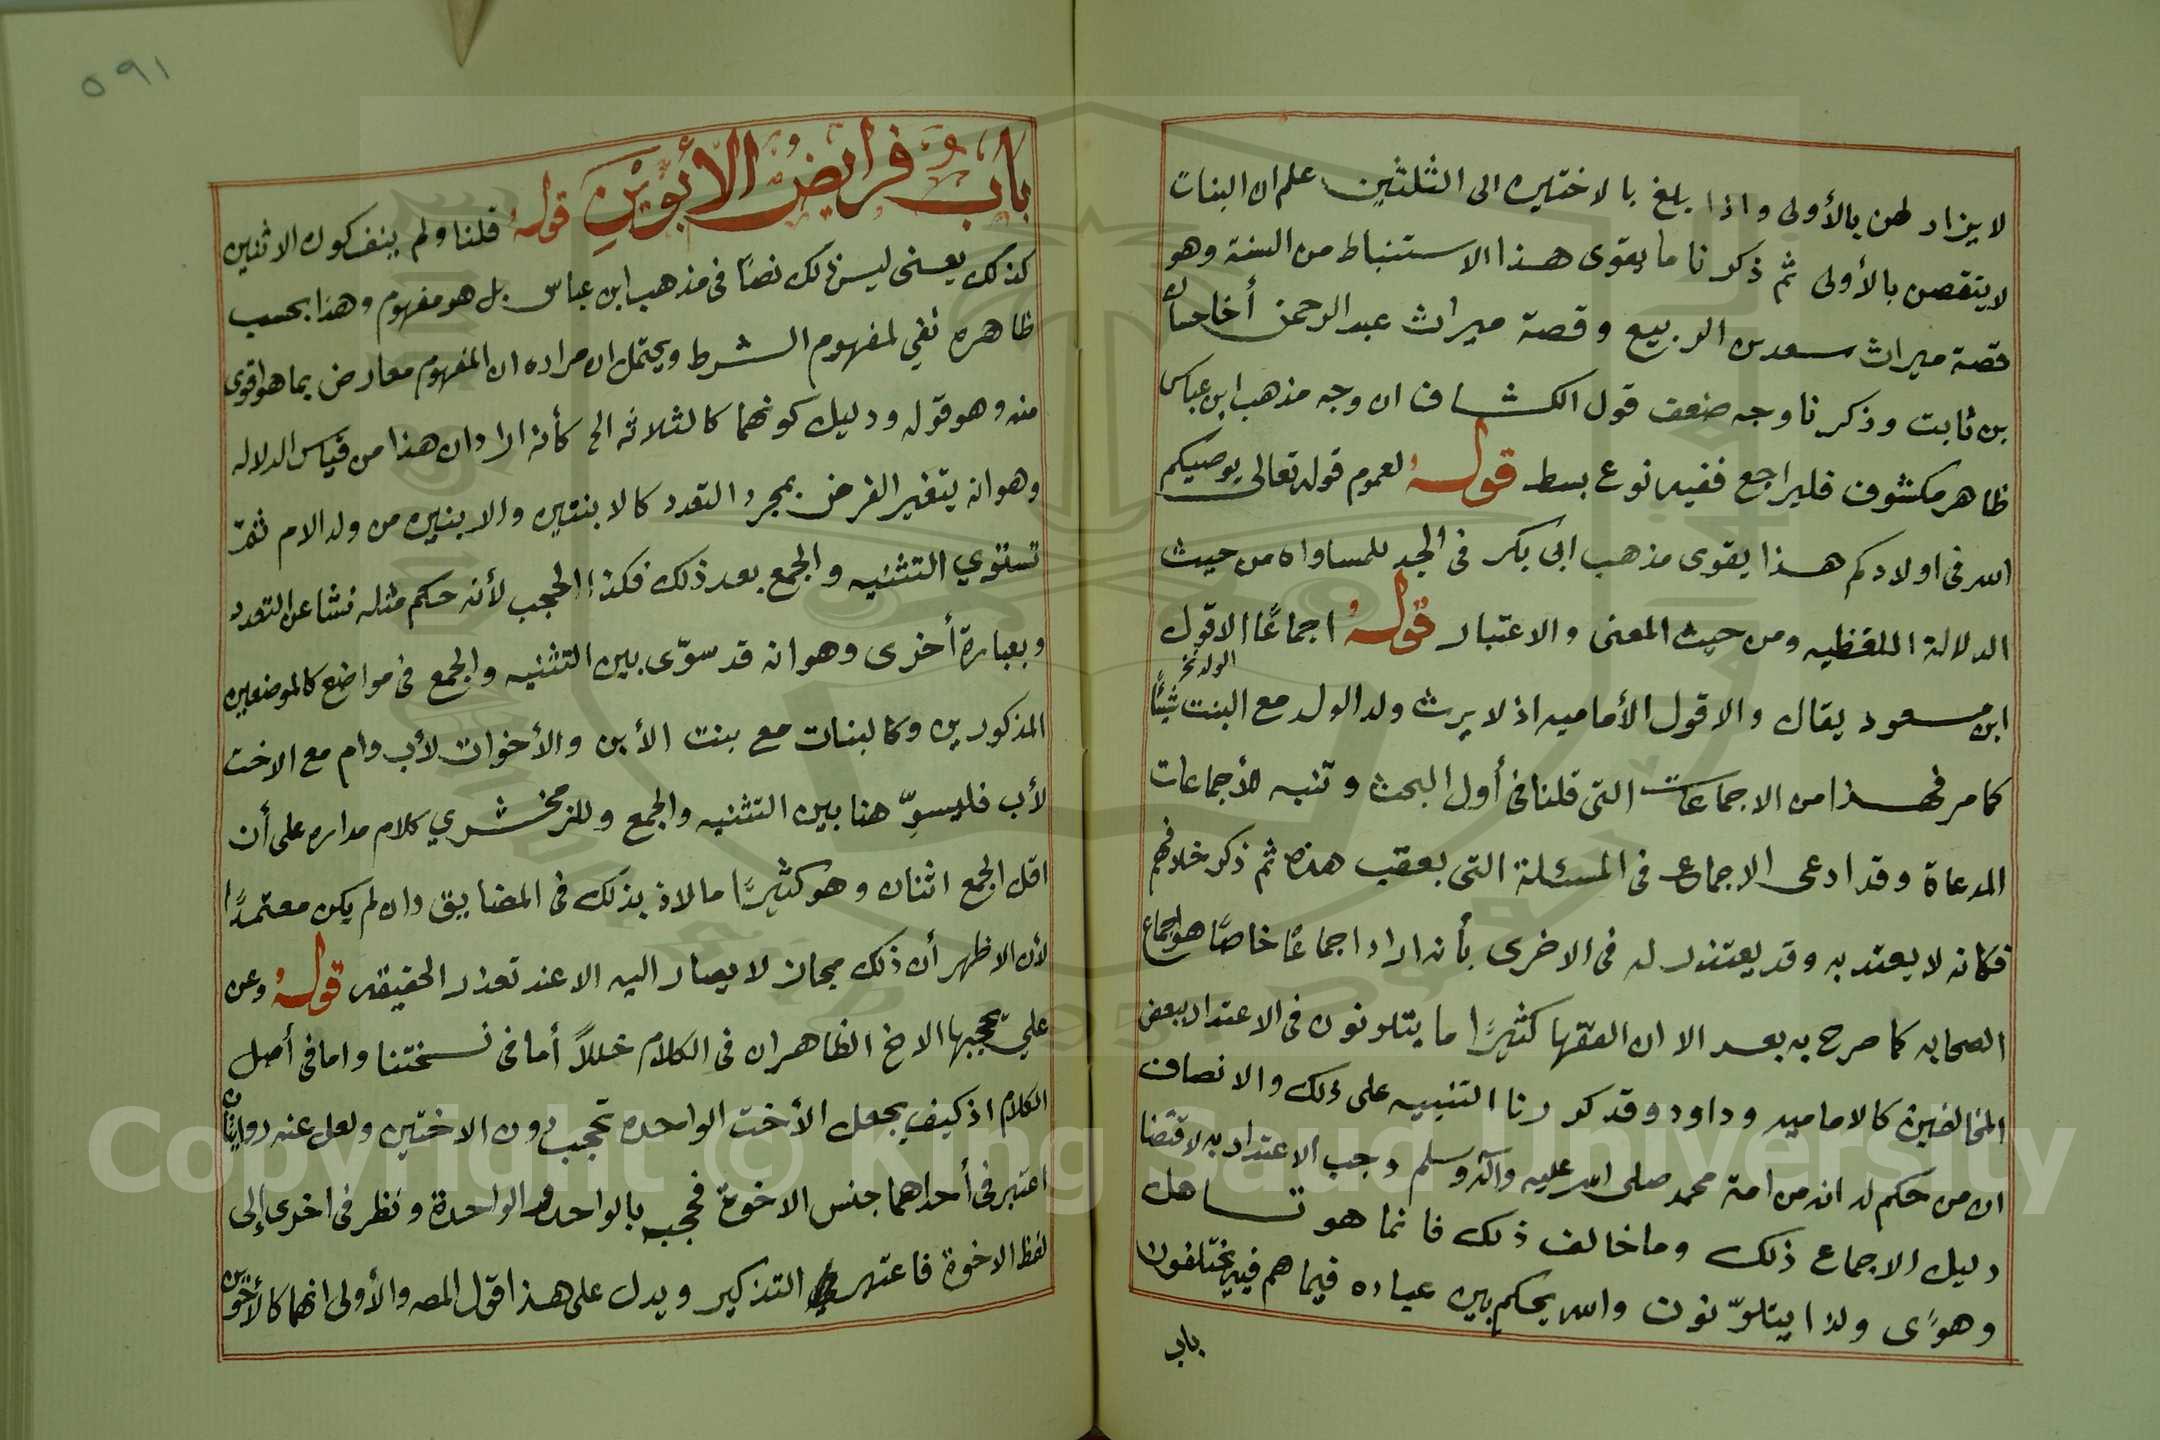 لا يزاد لهن بالأولى واذا بلغ بالاختين الى الثلثين علم ان البنات
لا ينقصن بالأولى ثم ذكرنا ما يقوى هذا الاستنباط من السنة وهو
قصة ميراث سعد بن الربيع وقصة ميراث عبد الرحمن أخا حسان
بن ثابت وذكرنا وجه ضعف قول الكشاف ان وجه مذهب ابن عباس
ظاهر مكشوف فليراجع ففيه نوع بسط قوله لعموم قوله تعالى يوصيكم
الله فى اولادكم هذا يقوى مذهب ابى بكر فى الجد للمساواه من حيث
الدلالة اللفظيه ومن حيث المعنى والاعتبار قوله اجماعًا الا قول
ابن مسعود يقال والا قول الأماميه اذ لا يرث ولد الولد مع البنت شيئًا
الولد نخ
كما مر فهذا من الاجماعات التى قلنا فى أول البحث وتنبه للأجماعات
المدعاة وقد ادعى الاجماع فى المسئلة التى بعقب هذه ثم ذكر خلافهم
فكانه لا يعتد به وقد يعتذر له فى الاخرى بأنه اراد اجماعًا خاصًا هو اجماع
الصحابه كما صرح به بعد الا ان الفقها كثيرًا ما يتلونون فى الاعتداد ببعض
المخالفين كالاماميه وداود وقد كررنا التنبيه على ذلك والانصاف
ان من حكم له انه من امة محمد صلى الله عليه وآله وسلم وجب الاعتداد به لاقتضا
دليل الاجماع ذلك وما خالف ذلك فانما هو تساهل
وهوًى ولذا يتلوّنون والله يحكم بين عباده فيما هم فيه يختلفون
باب
٥٩١
باب فرايض الأبوين قوله قلنا ولم ينف كون الاثنين
كذلك يعنى ليس ذلك نصًا فى مذهب ابن عباس بل هو مفهوم وهذا بحسب
ظاهره نفي لمفهوم الشرط ويحتمل ان مراده ان المفهوم معارض بما هو اقوى
منه وهو قوله ودليل كونهما كالثلاثه الخ كأنه اراد ان هذا من قياس الدلاله
وهو انه يتغير الفرض بمجرد التعدد كالابنتين والابنين من ولد الام ثم
تستوي التثنيه والجمع بعد ذلك فكذا الحجب لأنه حكم مثله نشا عن التعدد
وبعبارة أخرى وهو انه قد سوّى بين التثنيه والجمع فى مواضع كالموضعين
المذكورين وكالبنات مع بنت الأبن والأخوات لأب وام مع الاخت
لأب فليسوِّ هنا بين التثنيه والجمع وللزمخشري كلام مداره على أن
اقل الجمع اثنان وهو كثيرًا ما لاذ بذلك فى المضايق وان لم يكن معتمدًا
لأن الاظهر أن ذلك مجاز لا يصار اليه الا عند تعذر الحقيقه قوله وعن
علي يحجبها الاخ الظاهر ان فى الكلام خللاً أما فى نسختنا واما فى أصل
الكلام اذ كيف يجعل الأخت الواحده تحجب دون الاختين ولعل عنه روايتان
اعتبر فى أحداهما جنس الاخوة فحجبه بالواحد والواحدة ونظر فى اخرى إلى
لفظ الاخوة فاعتبر التذكير ويدل على هذا قول المصه والأولى انهما كالأخوين